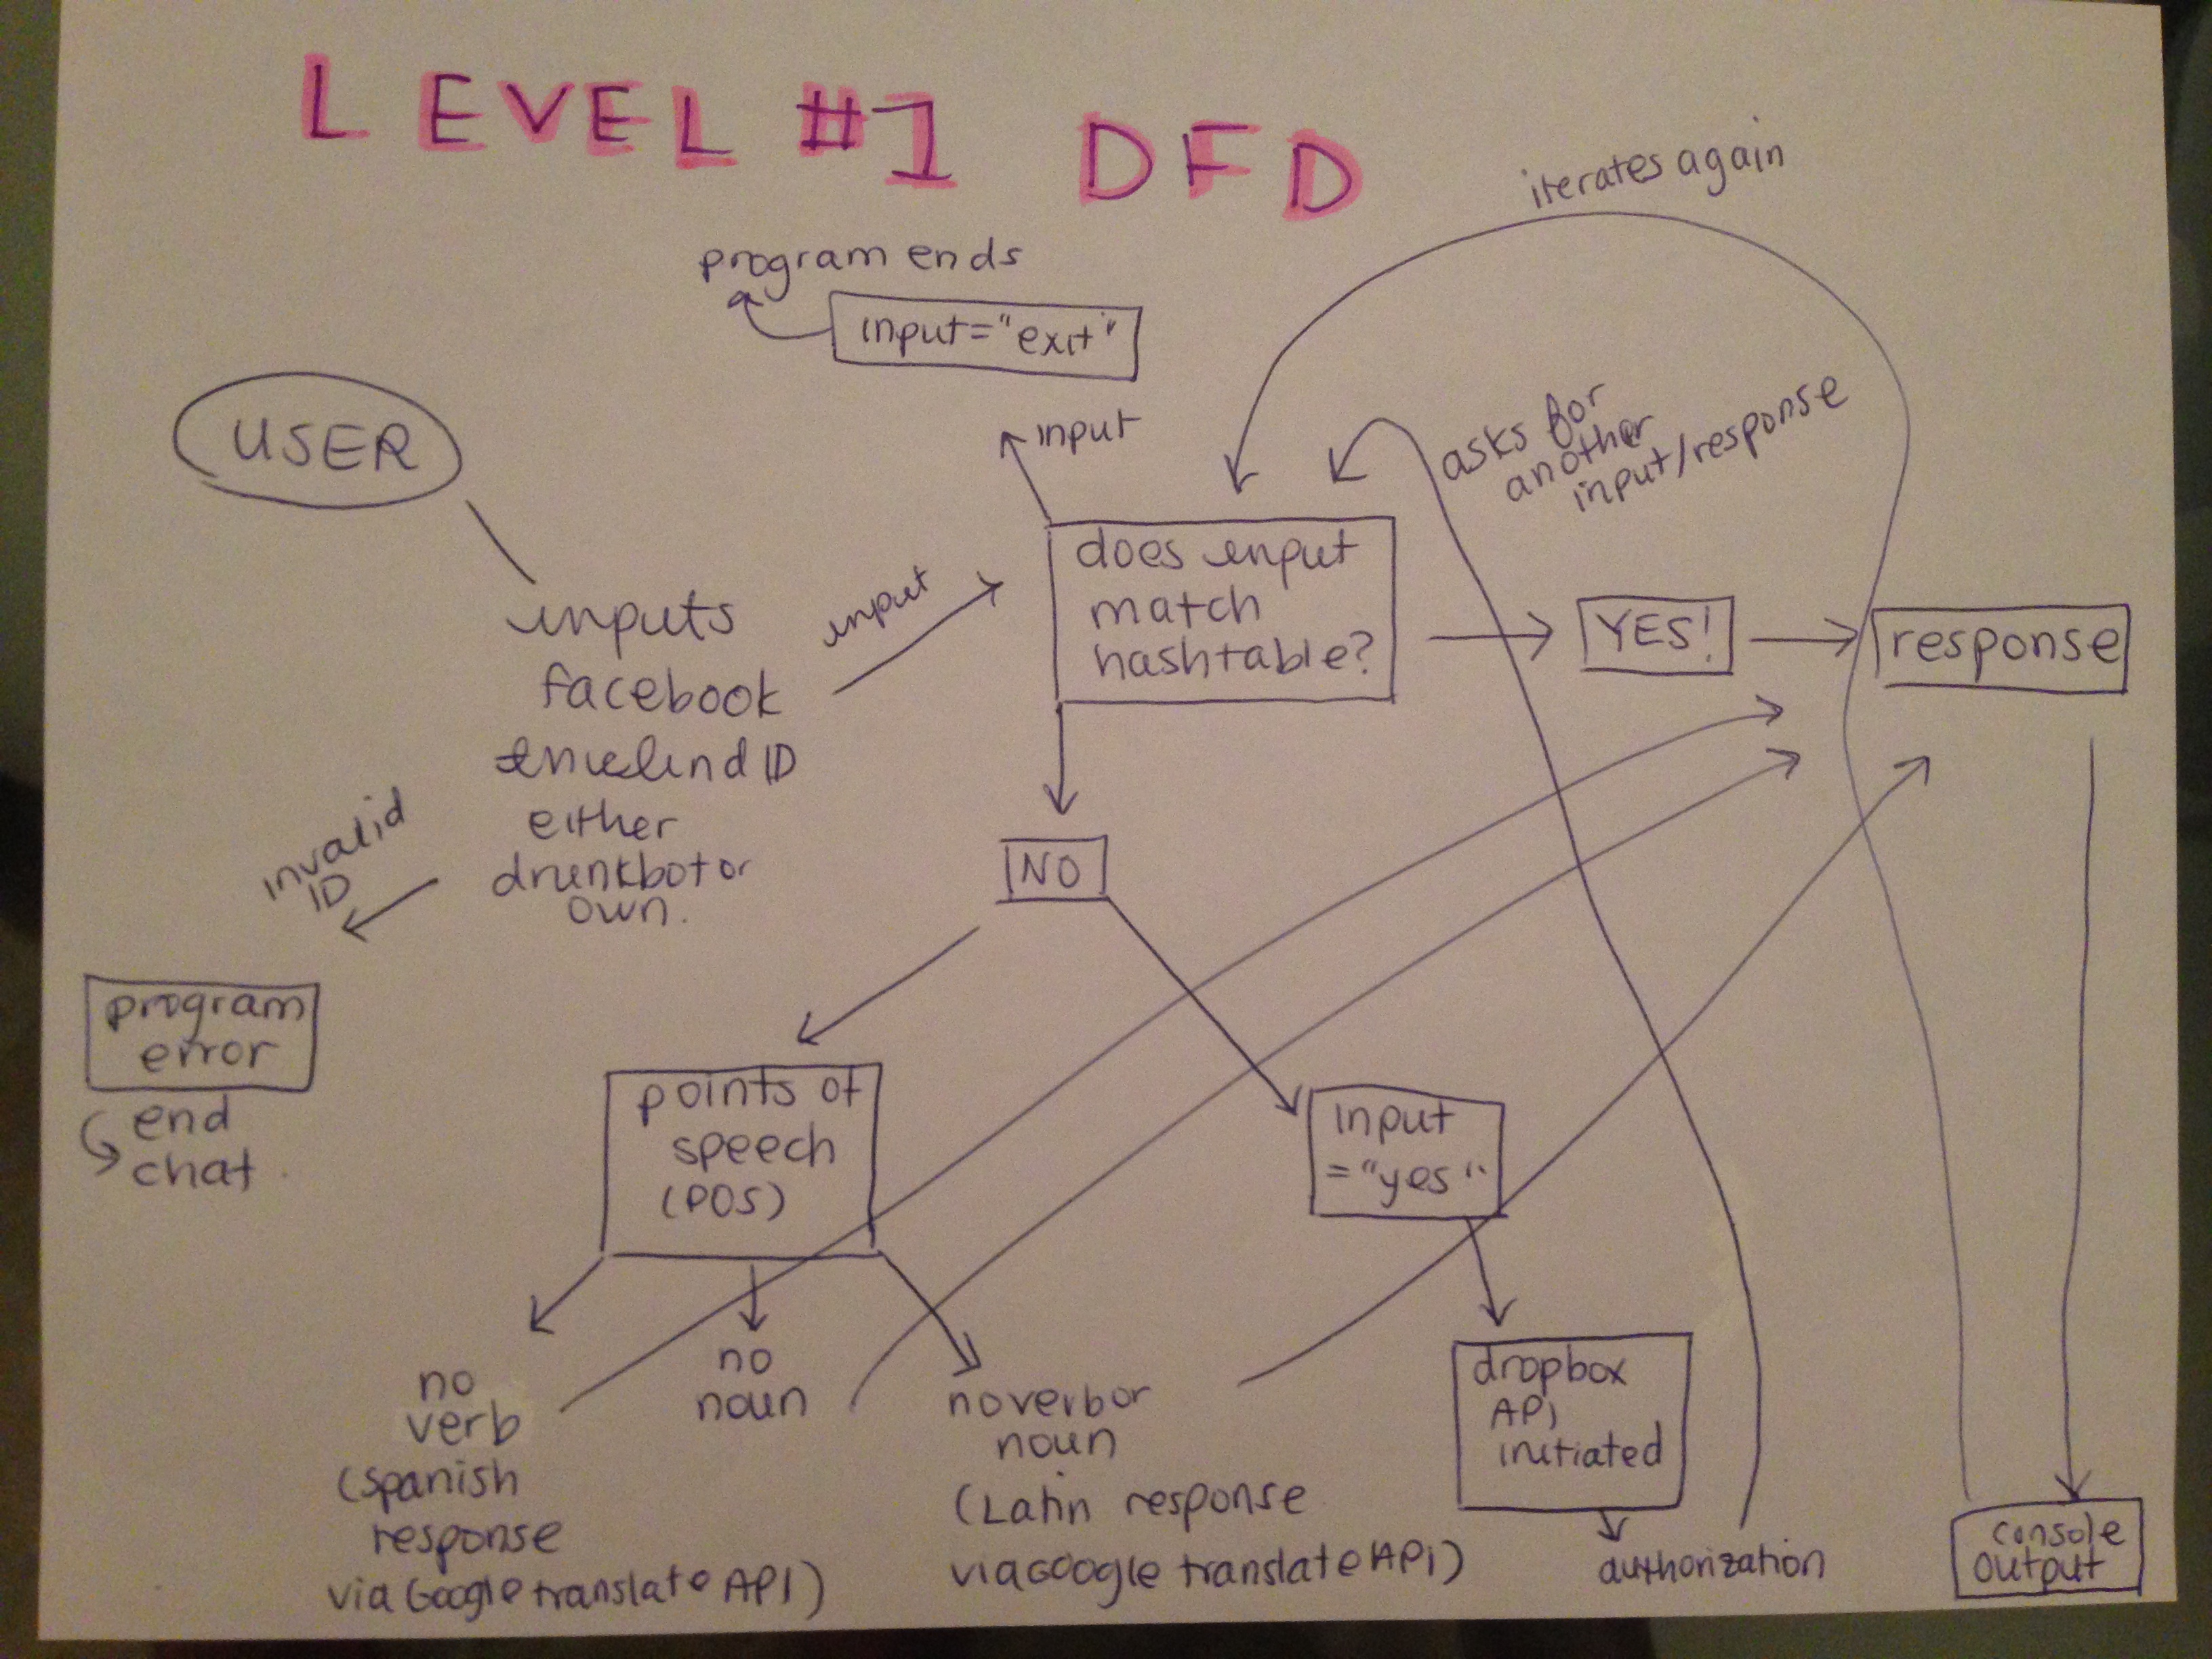 LEVEL #1 DFD
iterates again
program ends
input="exit"
USER
input
asks for
another
input/response
does input
match
hashtable?
YES!
response
input
inputs
facebook
ID
either
drunkbot or
own.
invalid
ID
NO
program
error
end
chat.
points of
speech
(POS)
input
="yes"
no
verb
(spanish
response
via Google translate API)
no
noun
no verb or
noun
(Latin response
via Google translate API)
dropbox
API
initiated
authorization
console
output